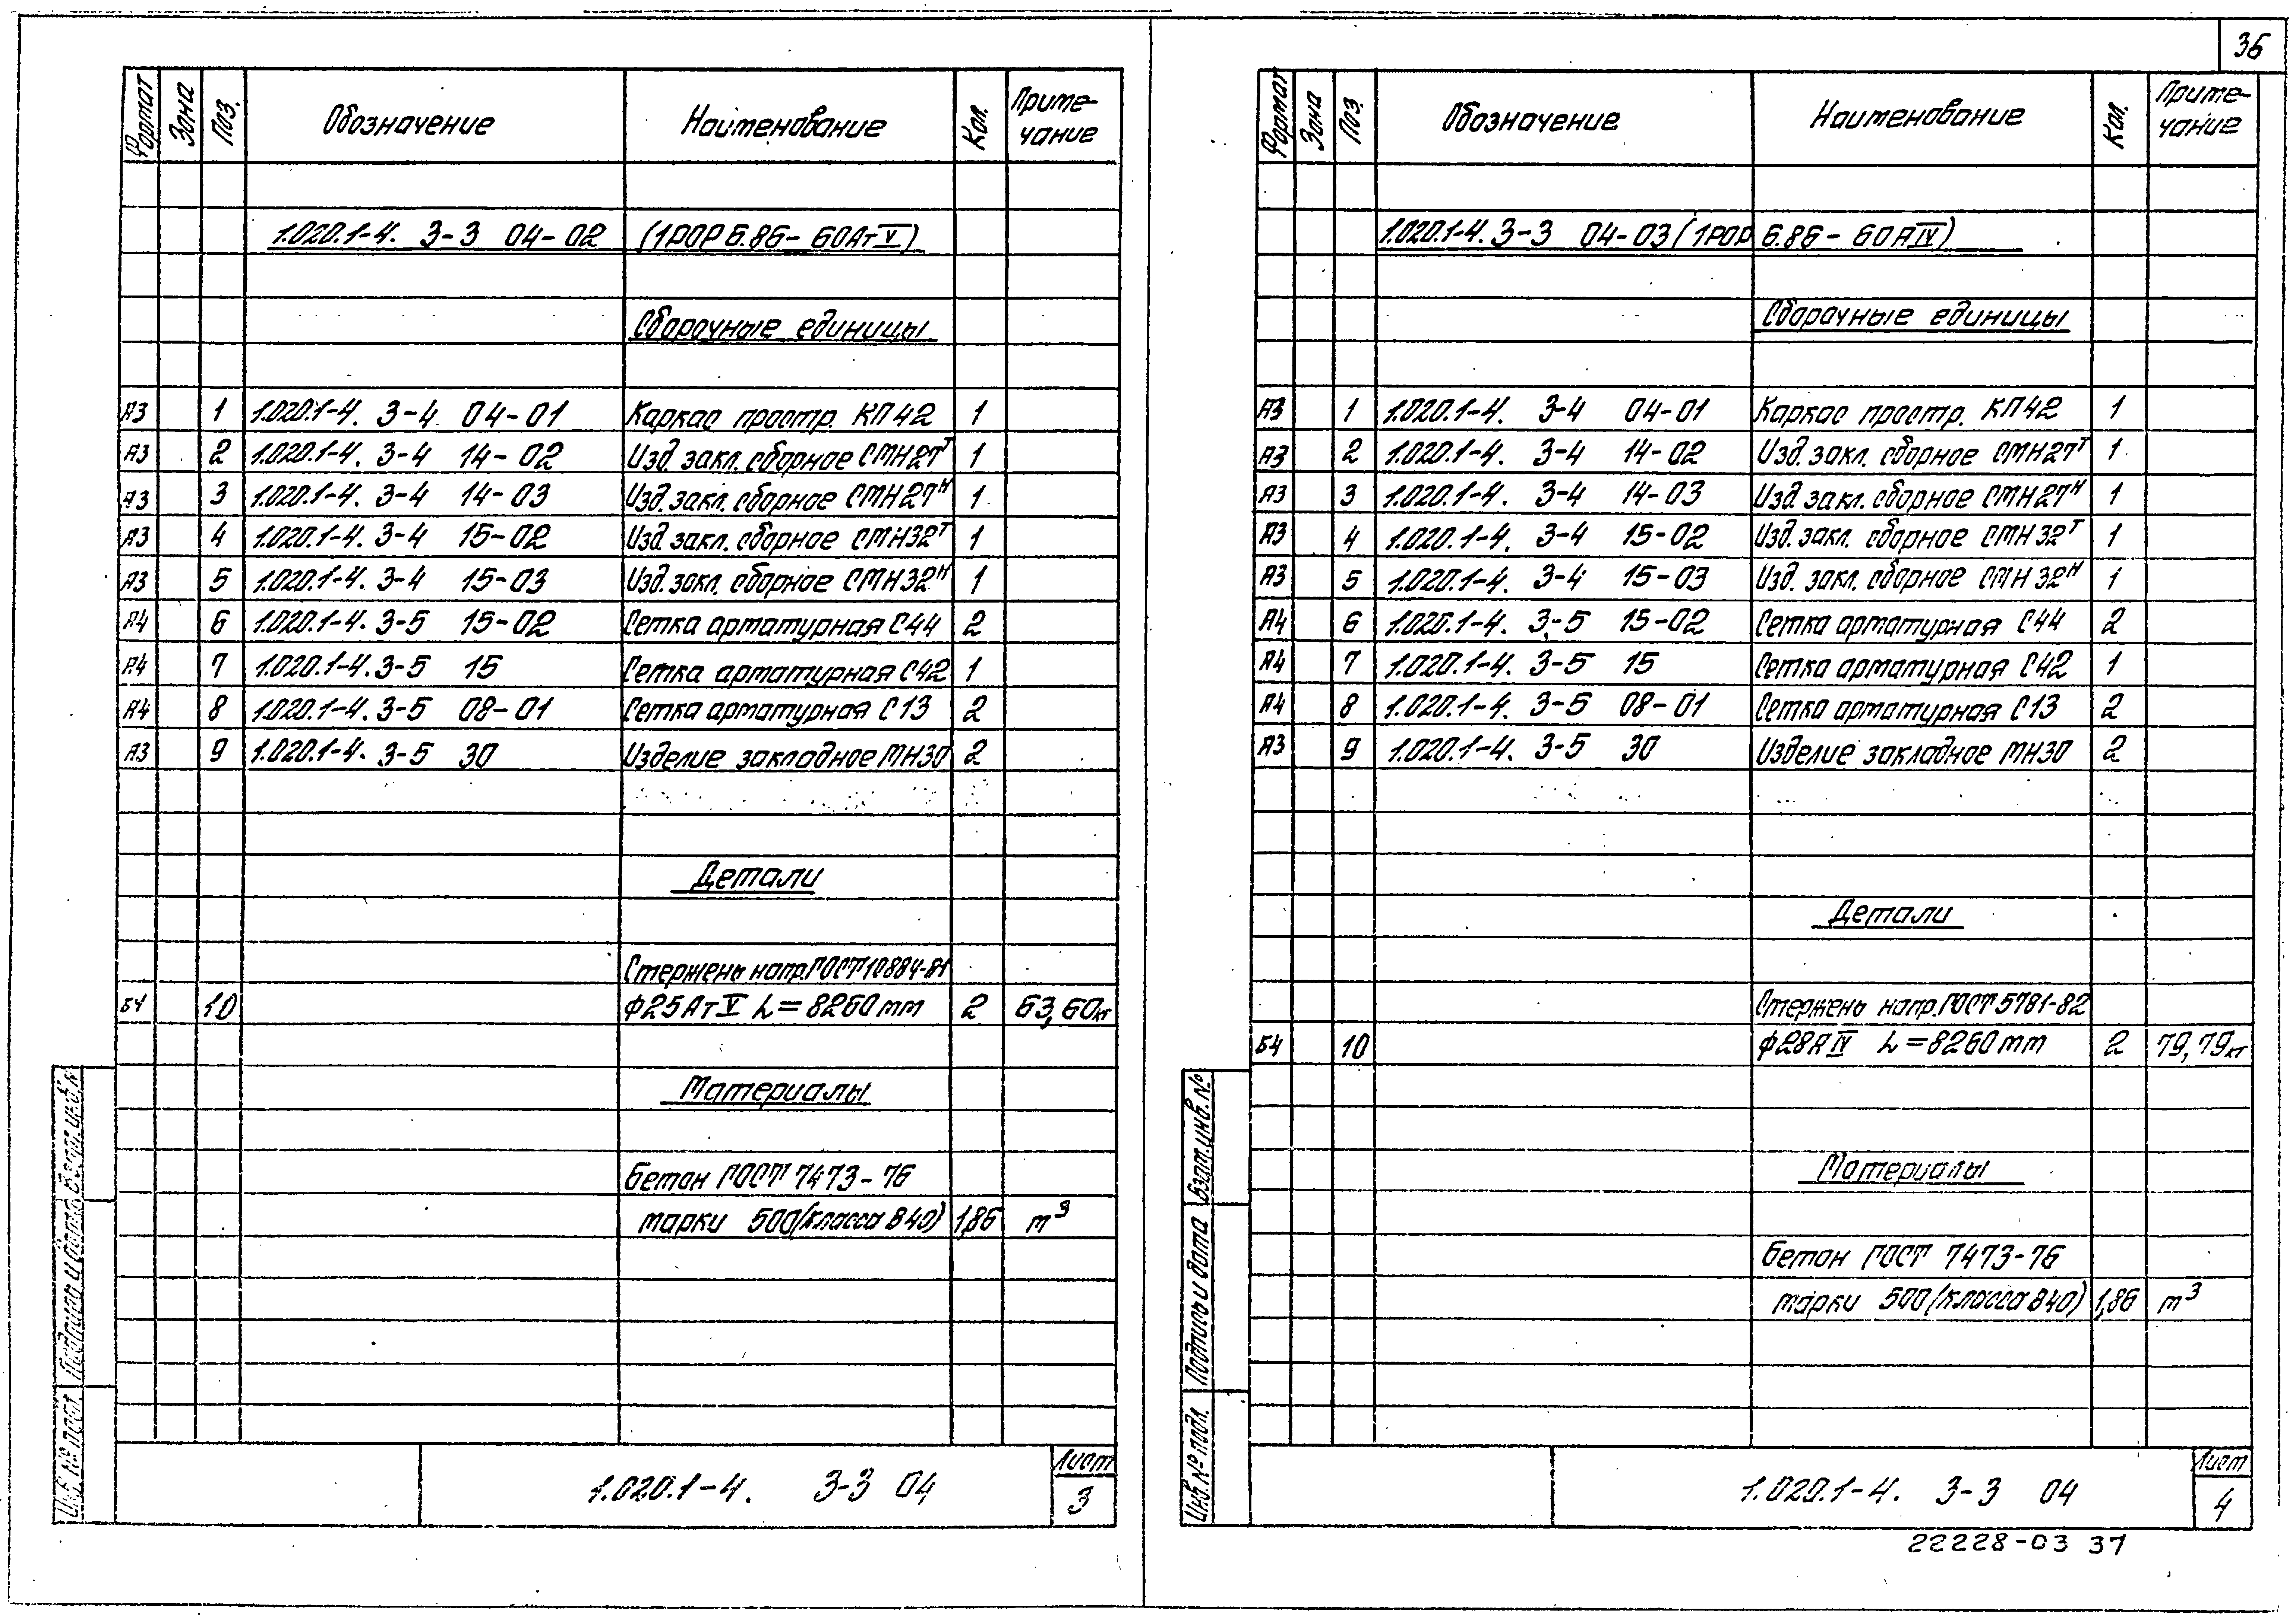 36
Формат Зона Поз. Обозначение Наименование Кол. Приме-
чание
1.020.1-4. 3-3 04-02 (1РОР 6.86-60АтV)
Сборочные единицы
А3 1 1.020.1-4. 3-4 04-01 Каркас простр. КП42 1
А3 2 1.020.1-4. 3-4 14-02 Изд. закл. сборное СМН27Т 1
А3 3 1.020.1-4. 3-4 14-03 Изд. закл. сборное СМН27Н 1
А3 4 1.020.1-4. 3-4 15-02 Изд. закл. сборное СМН32Т 1
А3 5 1.020.1-4. 3-4 15-03 Изд. закл. сборное СМН32Н 1
А4 6 1.020.1-4. 3-5 15-02 Сетка арматурная С44 2
А4 7 1.020.1-4. 3-5 15 Сетка арматурная С42 1
А4 8 1.020.1-4. 3-5 08-01 Сетка арматурная С13 2
А3 9 1.020.1-4. 3-5 30 Изделие закладное МН30 2
Детали
Стержень напр. ГОСТ 10884-81
Б4 10 ф25АтV L=8260мм 2 63,60кг
Материалы
Бетон ГОСТ 7473-76
марки 500 (класса В40) 1,86 м³
Инв. № подл. Подпись и дата Взам. инв. №
1.020.1-4. 3-3 04
Лист
3
Формат Зона Поз. Обозначение Наименование Кол. Приме-
чание
1.020.1-4. 3-3 04-03 (1РОР 6.86-60АIV)
Сборочные единицы
А3 1 1.020.1-4. 3-4 04-01 Каркас простр. КП42 1
А3 2 1.020.1-4. 3-4 14-02 Изд. закл. сборное СМН27Т 1
А3 3 1.020.1-4. 3-4 14-03 Изд. закл. сборное СМН27Н 1
А3 4 1.020.1-4. 3-4 15-02 Изд. закл. сборное СМН32Т 1
А3 5 1.020.1-4. 3-4 15-03 Изд. закл. сборное СМН32Н 1
А4 6 1.020.1-4. 3-5 15-02 Сетка арматурная С44 2
А4 7 1.020.1-4. 3-5 15 Сетка арматурная С42 1
А4 8 1.020.1-4. 3-5 08-01 Сетка арматурная С13 2
А3 9 1.020.1-4. 3-5 30 Изделие закладное МН30 2
Детали
Стержень напр. ГОСТ 5781-82
Б4 10 ф28АIV L=8260мм 2 79,79кг
Материалы
Бетон ГОСТ 7473-76
марки 500 (класса В40) 1,86 м³
Инв. № подл. Подпись и дата Взам. инв. №
1.020.1-4. 3-3 04
Лист
4
22228-03 37